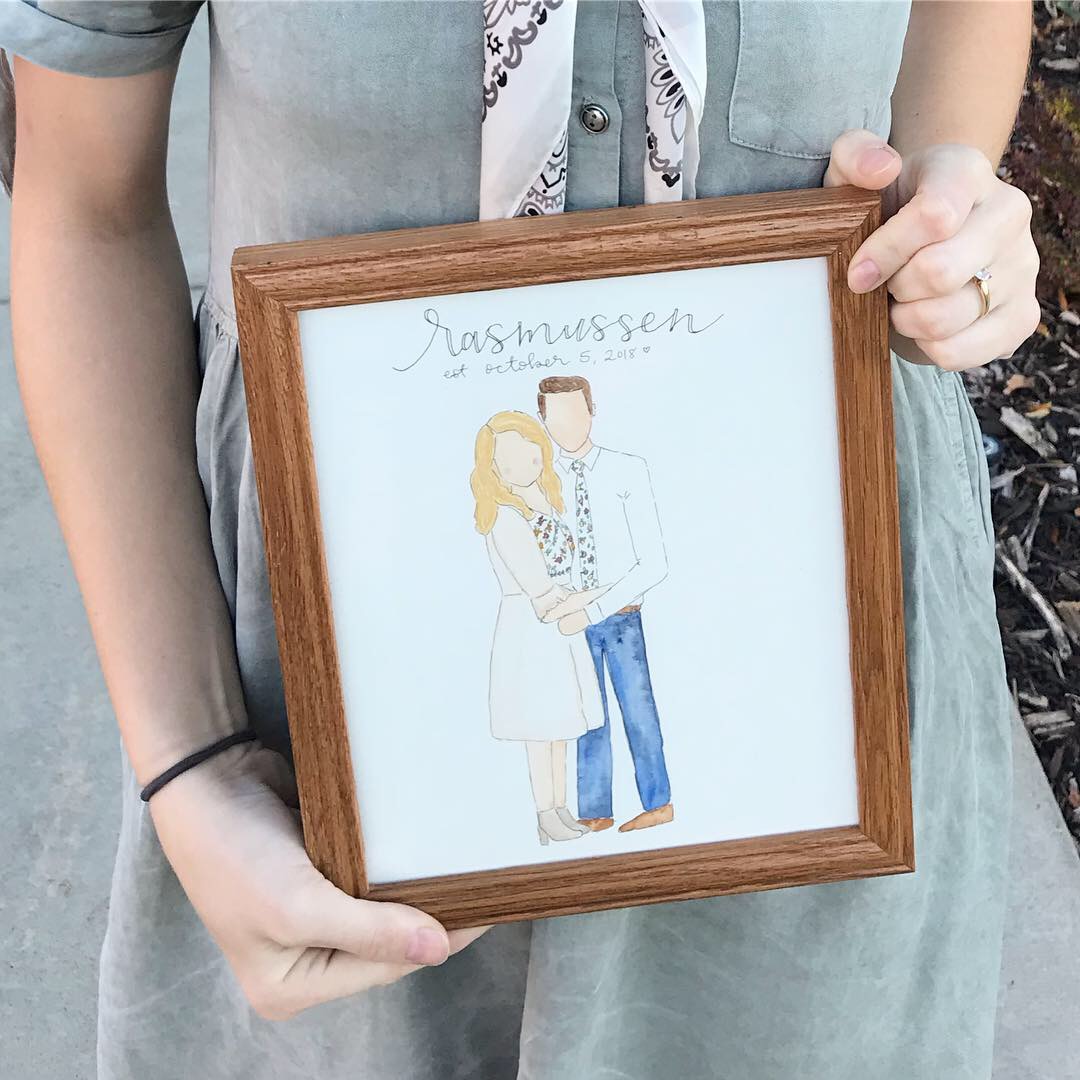 Rasmussen
est october 5, 2018 ♡